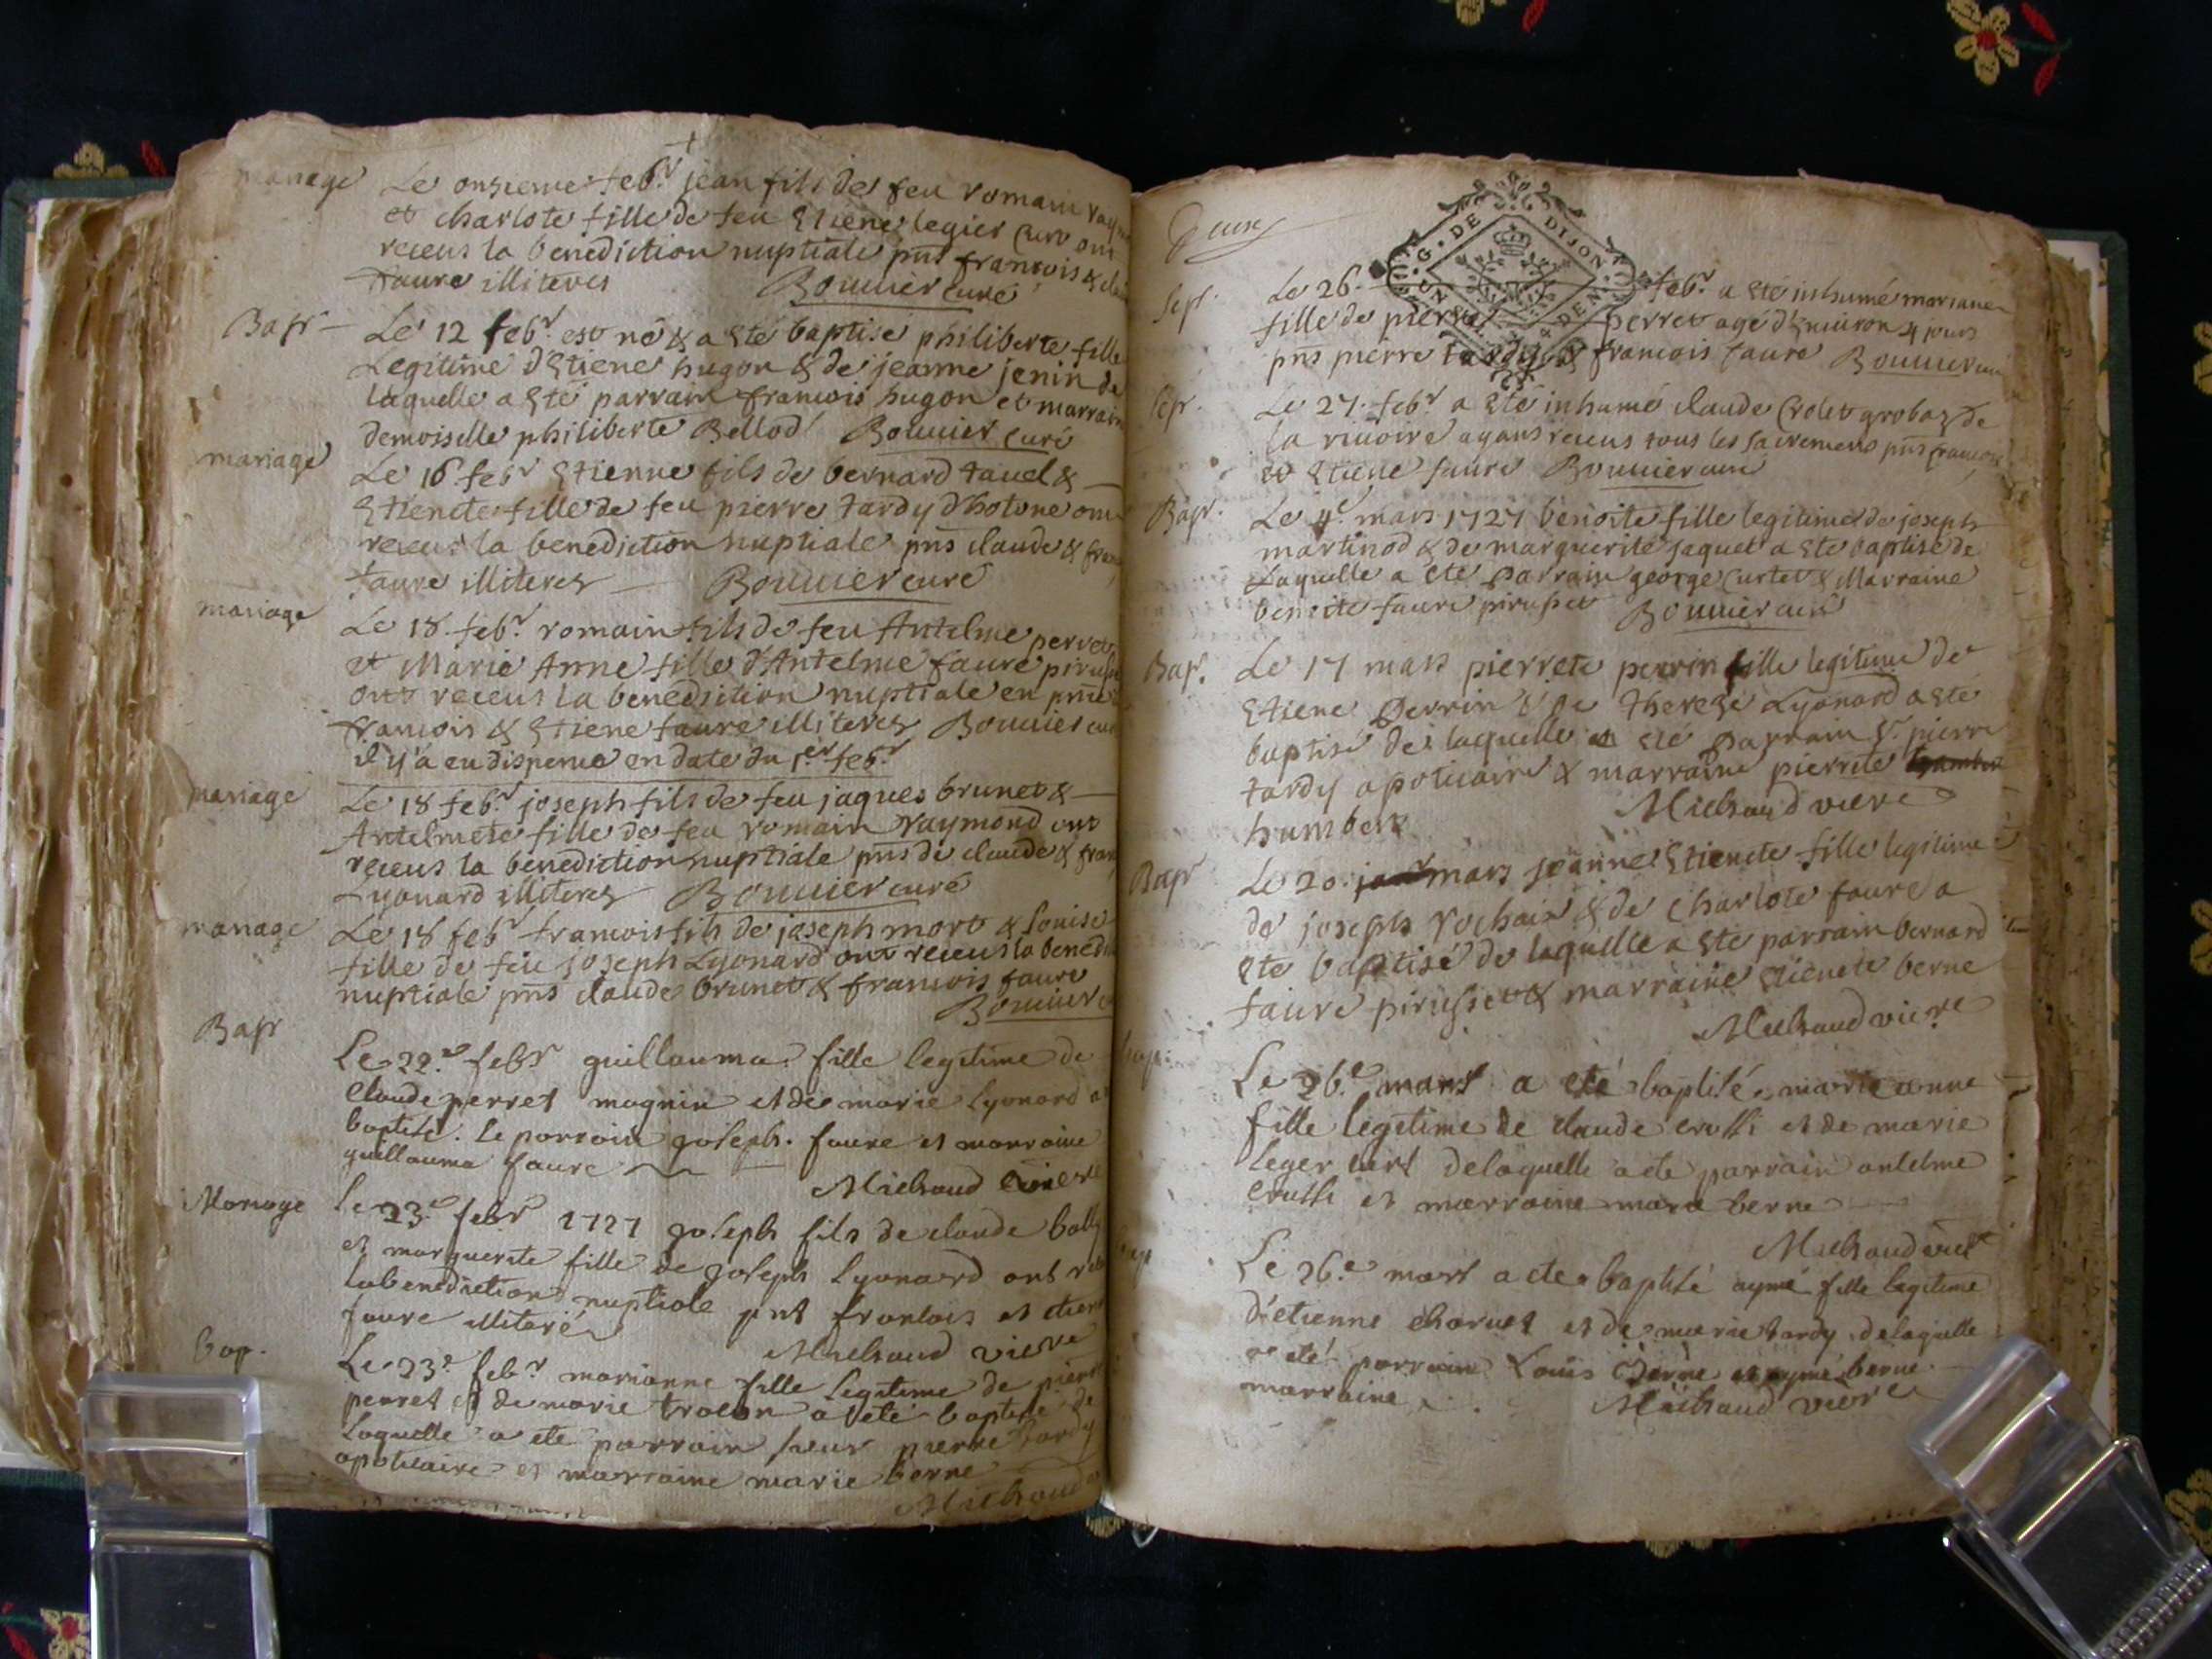 mariage Le onzieme feb.r jean fils de feu romain
et charlote fille de feu Etiene legier curt ont
receus la benediction nuptiale pñs francois &
faure illiteres Bouuier curé
Bapt Le 12 feb.r est né & a Eté baptisé philiberte fille
Legitime d'Etiene hugon & de jeanne jenin de
laquelle a Eté parrain francois hugon et marraine
demoiselle philiberte Bellod Bouuier curé
mariage Le 16 feb.r Etienne fils de bernard tauel &
Etienete fille de feu pierre tardy d'hotone ont
receus la benediction nuptiale pñs claude &
faure illiteres Bouuier curé
mariage Le 18 feb.r romain fils de feu Antelme perret
et Marie Anne fille d'Antelme faure
ont receus la benediction nuptiale en
francois & Etiene faure illiteres Bouuier
il y a eu dispense en date du 1.er feb.r
mariage Le 18 feb.r joseph fils de feu jaques brunet &
Antelmete fille de feu romain raymond ont
receus la benediction nuptiale pñs de claude &
Lyonard illiteres Bouuier curé
mariage Le 18 feb.r francois fils de joseph mort & louise
fille de feu joseph Lyonard ont receus la
nuptiale pñs claude brunet & francois faure
Bouuier
Bapt
Le 22.e febr guillauma fille legitime de
Claude perret magnin et de marie Lyonard a
baptisé. le parrain joseph faure et marraine
guillauma faure
Michaud vicre
Mariage Le 23.e febr 1727 joseph fils de claude bolly
et marguerite fille de joseph Lyonard ont
la benediction nuptiale pnt francois et
faure illiteré
Michaud vicre
bap. Le 23.e feb.r marianne fille legitime de pierre
perret et de marie a eté baptisé de
laquelle a eté parrain sieur pierre tardy
apoticaire et marraine marie berne
Michaud
Deux
G. DE DIJON
UN S. 4 DEN.
Sept. Le 26. feb.r a Eté inhumé mariane
fille de pierre perret agé d'Enuiron 4 jours
pñs pierre tardy & francois faure Bouuier
Sept. Le 27. feb.r a Eté inhumé claude Crolet grobaz de
la riuoire ayant receus tous les sacremens pñs francois
et Etiene faure Bouuier curé
Bapt. Le 4.e mars 1727 benoite fille legitime de joseph
martinod & de marguerite jaquet a Eté baptisé de
Laquelle a eté parrain george curtet & Marraine
benoite faure pirusset Bouuier curé
Bap. Le 17 mars pierrete perrin fille legitime de
Etiene perrin & de therese Lyonard a Eté
baptisé de laquelle a Eté parrain S.r pierre
tardy apoticaire & marraine pierrete
humbert Michaud vicre
Bapt Le 20. mars jeanne Etienete fille legitime
de joseph rochaix & de charlote faure a
Eté baptisé de laquelle a Eté parrain bernard
faure pirusset & marraine Etienete berne
Michaud vicre
bap.
Le 26.e mars a eté baptisé marie anne
fille legitime de claude et de marie
leger curt de laquelle a eté parrain antelme
et marraine marie berne
Michaud
bap
Le 26.e mars a eté baptisé aymé fille legitime
d'etienne charuet et de marie tardy de laquelle
a eté parrain Louis berne et aymé berne
marraine Michaud vicre